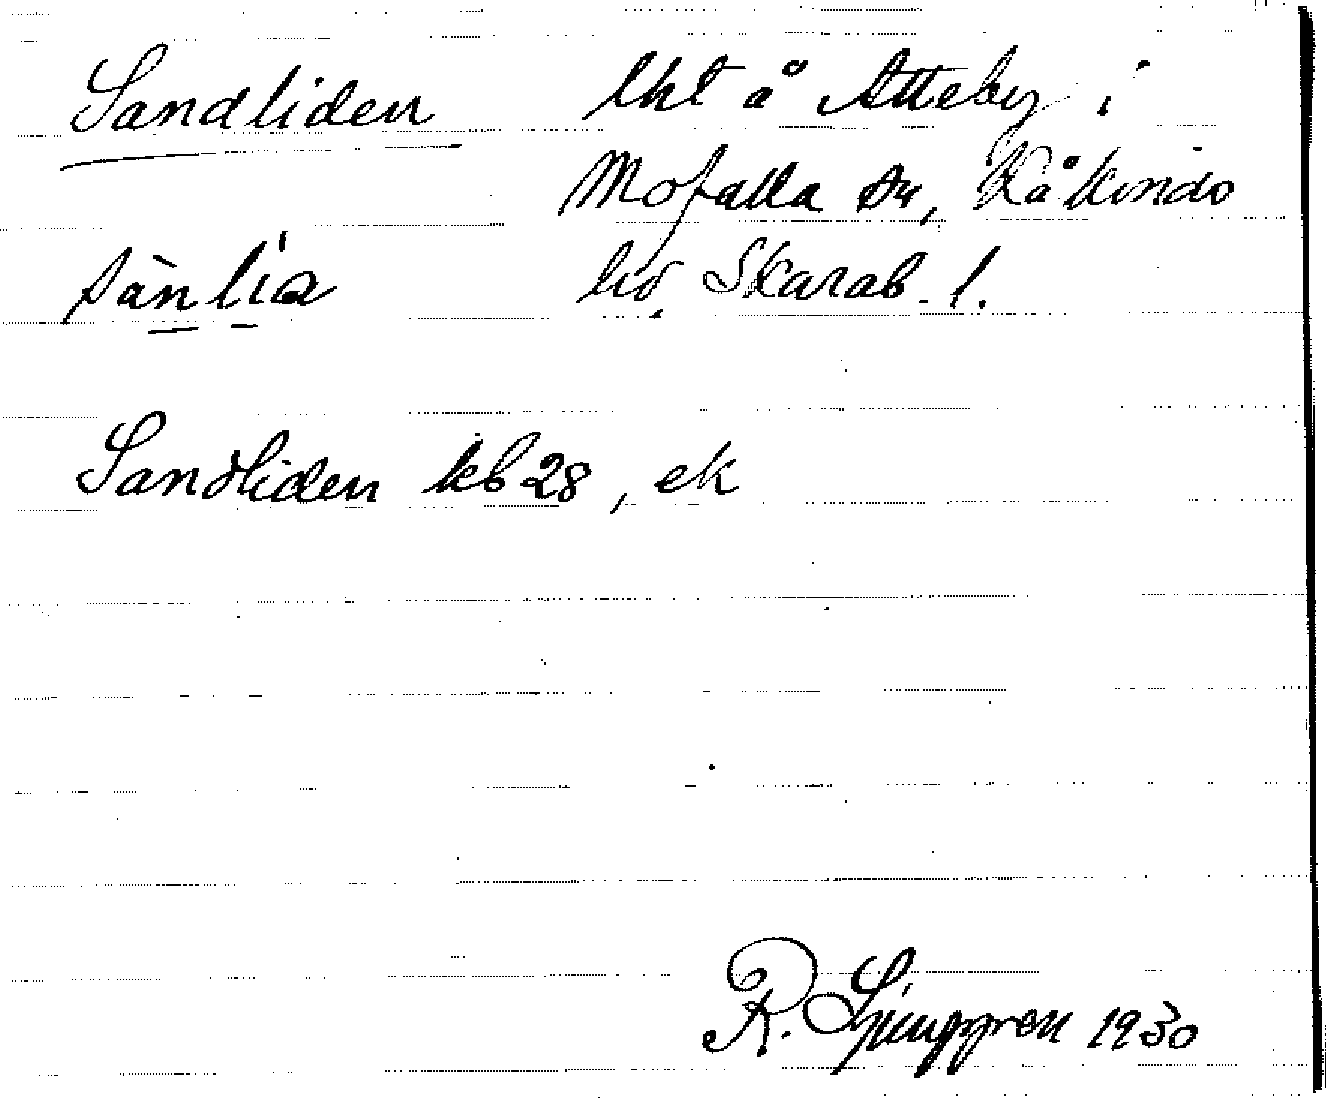 Sandliden lht å Atteby i
Mofalla sn, Kåkinds
sànlía hd Skarab. l.
Sandliden kb 28, ek
R. Ljunggren 1930